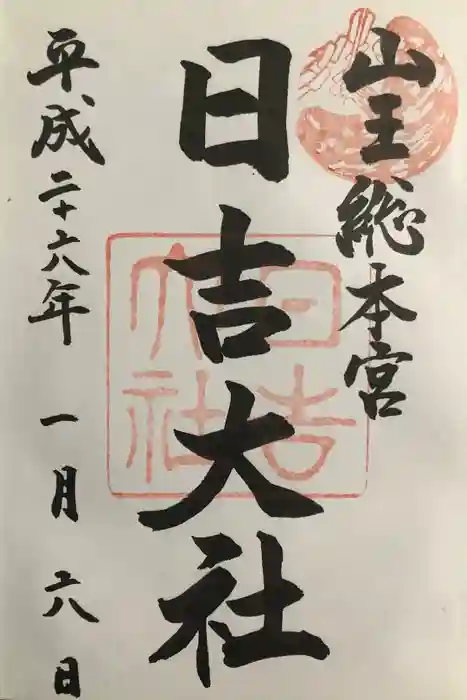 山王総本宮
日吉大社
平成二十六年 一月 六日
日吉大社